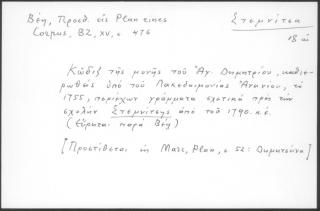 Βέη, Προσθ. εἰς Plan cines
Στεμνίτσα
Corpus, BZ, XV, σ 476
18 αἰ
Κῶδιξ τῆς μονῆς τοῦ Ἁγ. Δημητρίου, καθιε-
ρωθεὶς ὑπὸ τοῦ Λακεδαιμονίας Ἀνανίου, τῷ
1755, περιέχων γράμματα σχετικὰ πρὸς τὴν
σχολὴν Στεμνίτσης ἀπὸ τοῦ 1790. κ.ἑ.
(εὕρηται παρὰ Βέῃ)
[Προστίθεται ἐν Marc, Plan, σ 52: Δημητσάνα]